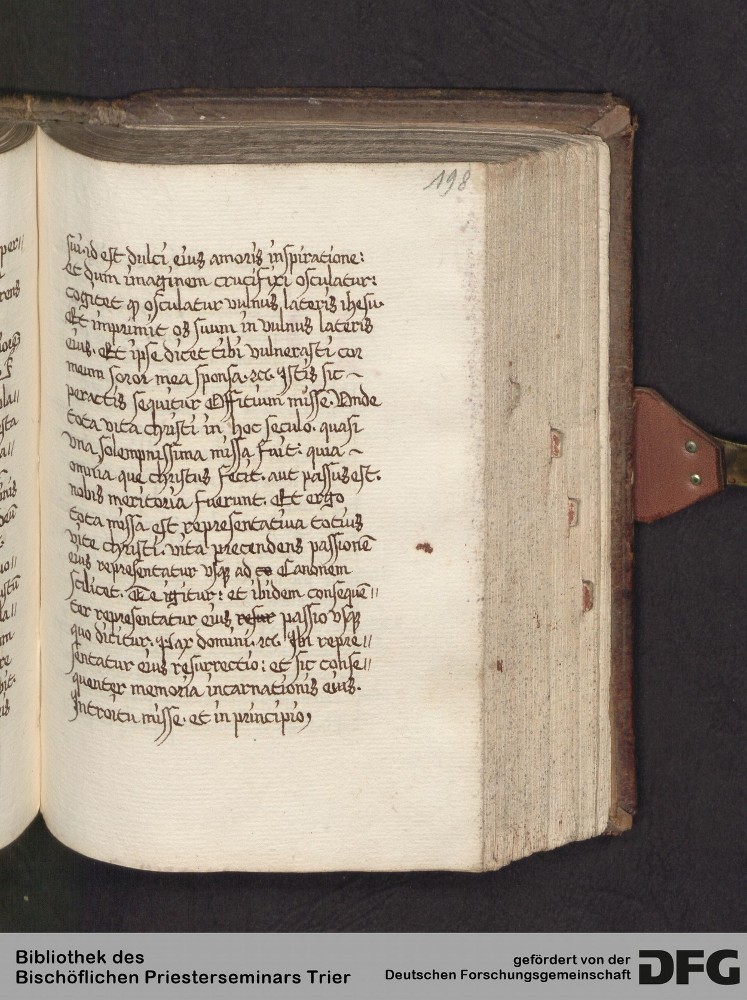 198
sui. id est dulci eius amoris inspiratione:
et dum imaginem crucifixi osculatur:
cogitet qp osculatur vulnus lateris ihesu.
Et imprimit os suum in vulnus lateris
eius. Et ipse dicet tibi vulnerasti cor
meum soror mea sponsa. zc. Istis sic ~
peractis sequitur Offitium misse. Vnde
tota vita christi in hoc seculo. quasi
vna solempnissima missa fuit: quia ~
omnia que christus fecit. aut passus est.
nobis meritoria fuerunt. Et ergo
tota missa est representatiua totius
vite christi. vita precendens passionē
eius representatur vsqȝ ad Canonem
scilicet. Te igitur: et ibidem consequē//
ter representatur eius resur passio vsqȝ
quo dicitur. Pax domini. zc. Ibi repre//
sentatur eius resurrectio: et sic conse//
quenter memoria incarnationis eius.
Introitu misse. et in principio,
per//
rens
sta
Bibliothek des
Bischöflichen Priesterseminars Trier
gefördert von der
Deutschen Forschungsgemeinschaft
DFG